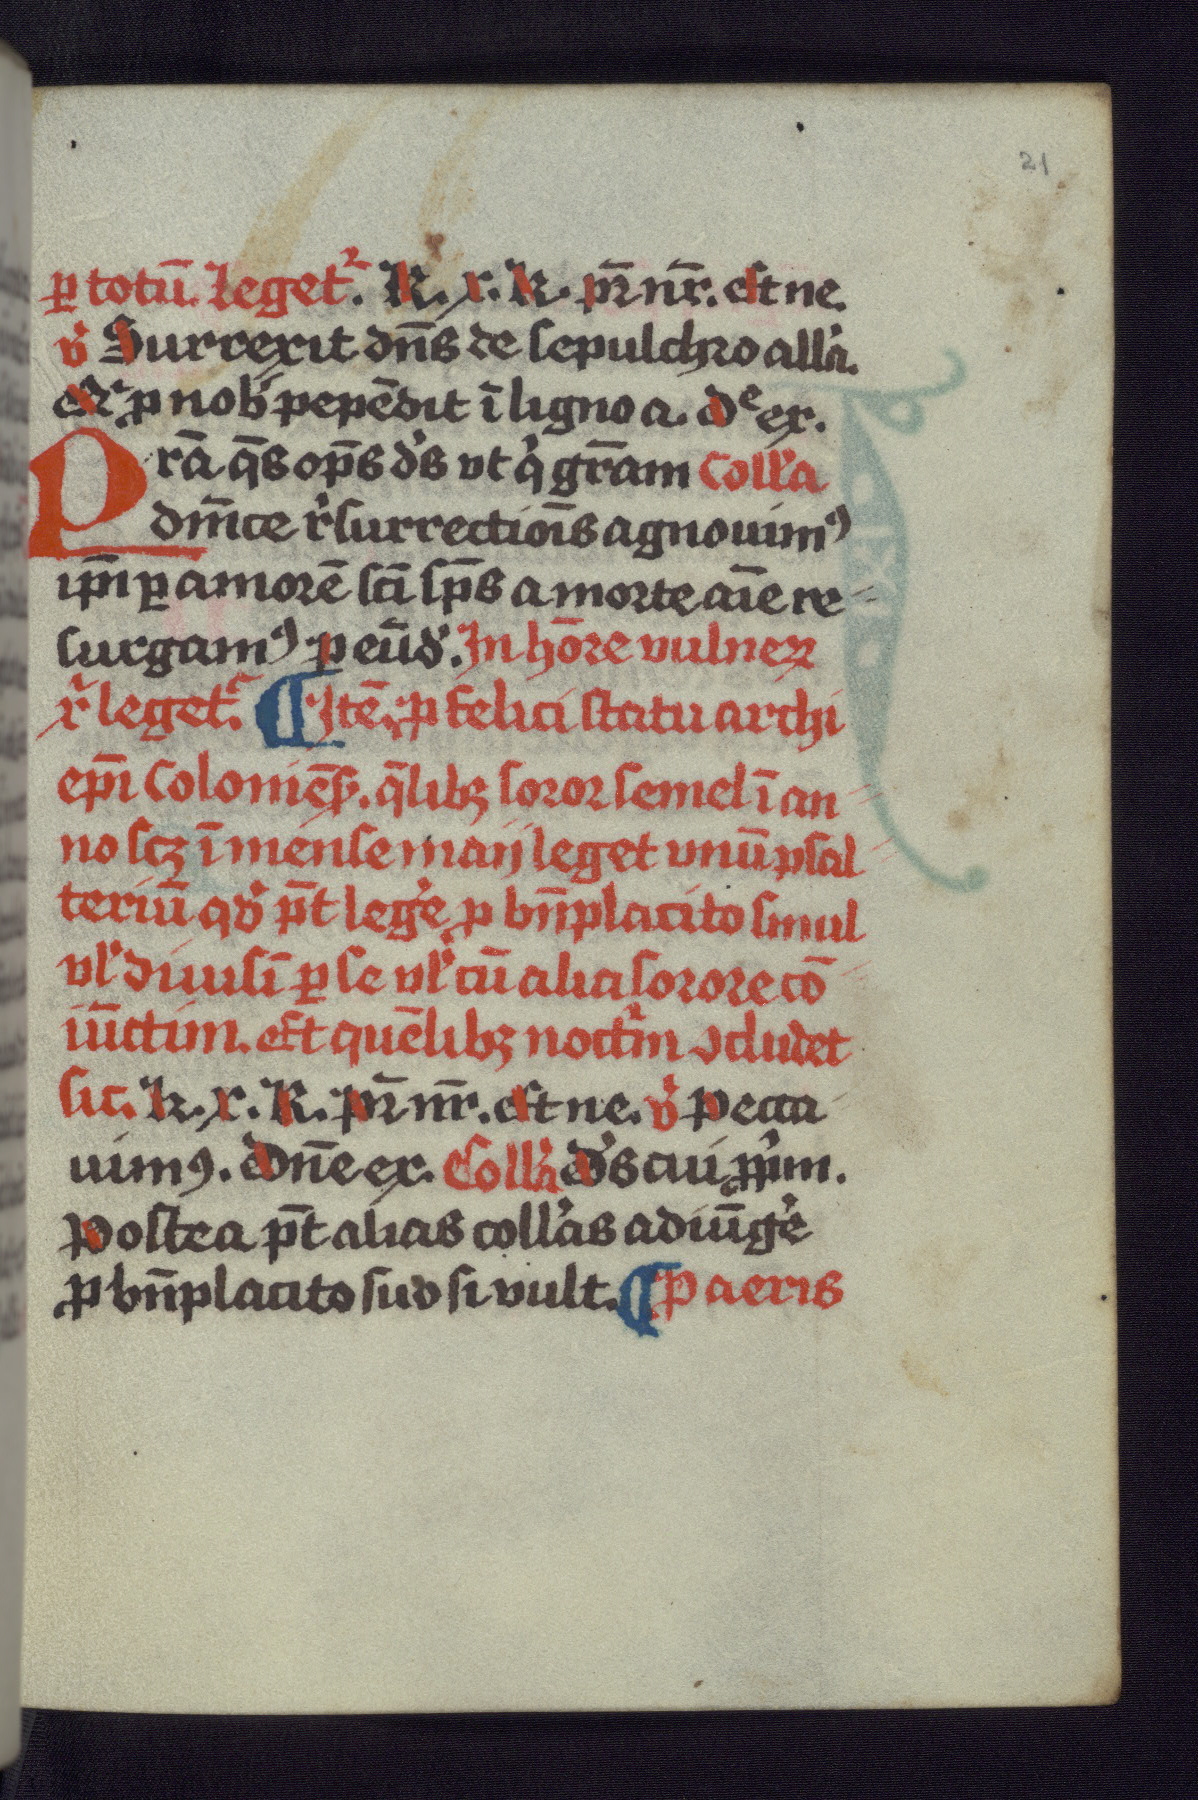 21
ꝑ totū. Leget᷑. K. x. K. pr̄ nr̄. et ne.
v̓ Surrexit dn̄s de sepulchro all'a.
Qr ꝓ nob̓ pepēdit ī ligno a. dᵉ ex.
Prā q̄s op̄s d̓s vt q̓ gr̄am Coll'a
dn̄ice r̓surrectiōis agnouimꝰ
ip̄i ꝑ amorē sc̄i sp̄s a morte aīe re
surgamꝰ ꝑ eūd̓. In hōre vulneꝝ
r̓ leget᷑. ¶ Itē. ꝓ felici statu archi
ep̄i Coloniēs̓. q̄libꝫ soror semel ī an
no scꝫ ī mense maij leget vnū psal
teriū qd̓ pt̄ leg̓e ꝓ bn̄placito simul
vl̓ diuisī ꝑ se vl̓ cū alia sorore cō
iūctim. Et quēlibꝫ noct᷑m ↄcludet
sic. K. x. K. pr̄ nr̄. et ne. v̓ Pecca
uimꝰ. Dn̄e ex. Coll'a D̓s cui ꝓp̓m.
Postea pt̄ alias coll'as adiūg̓e
ꝓ bn̄placito suo si vult. ¶ P aeris